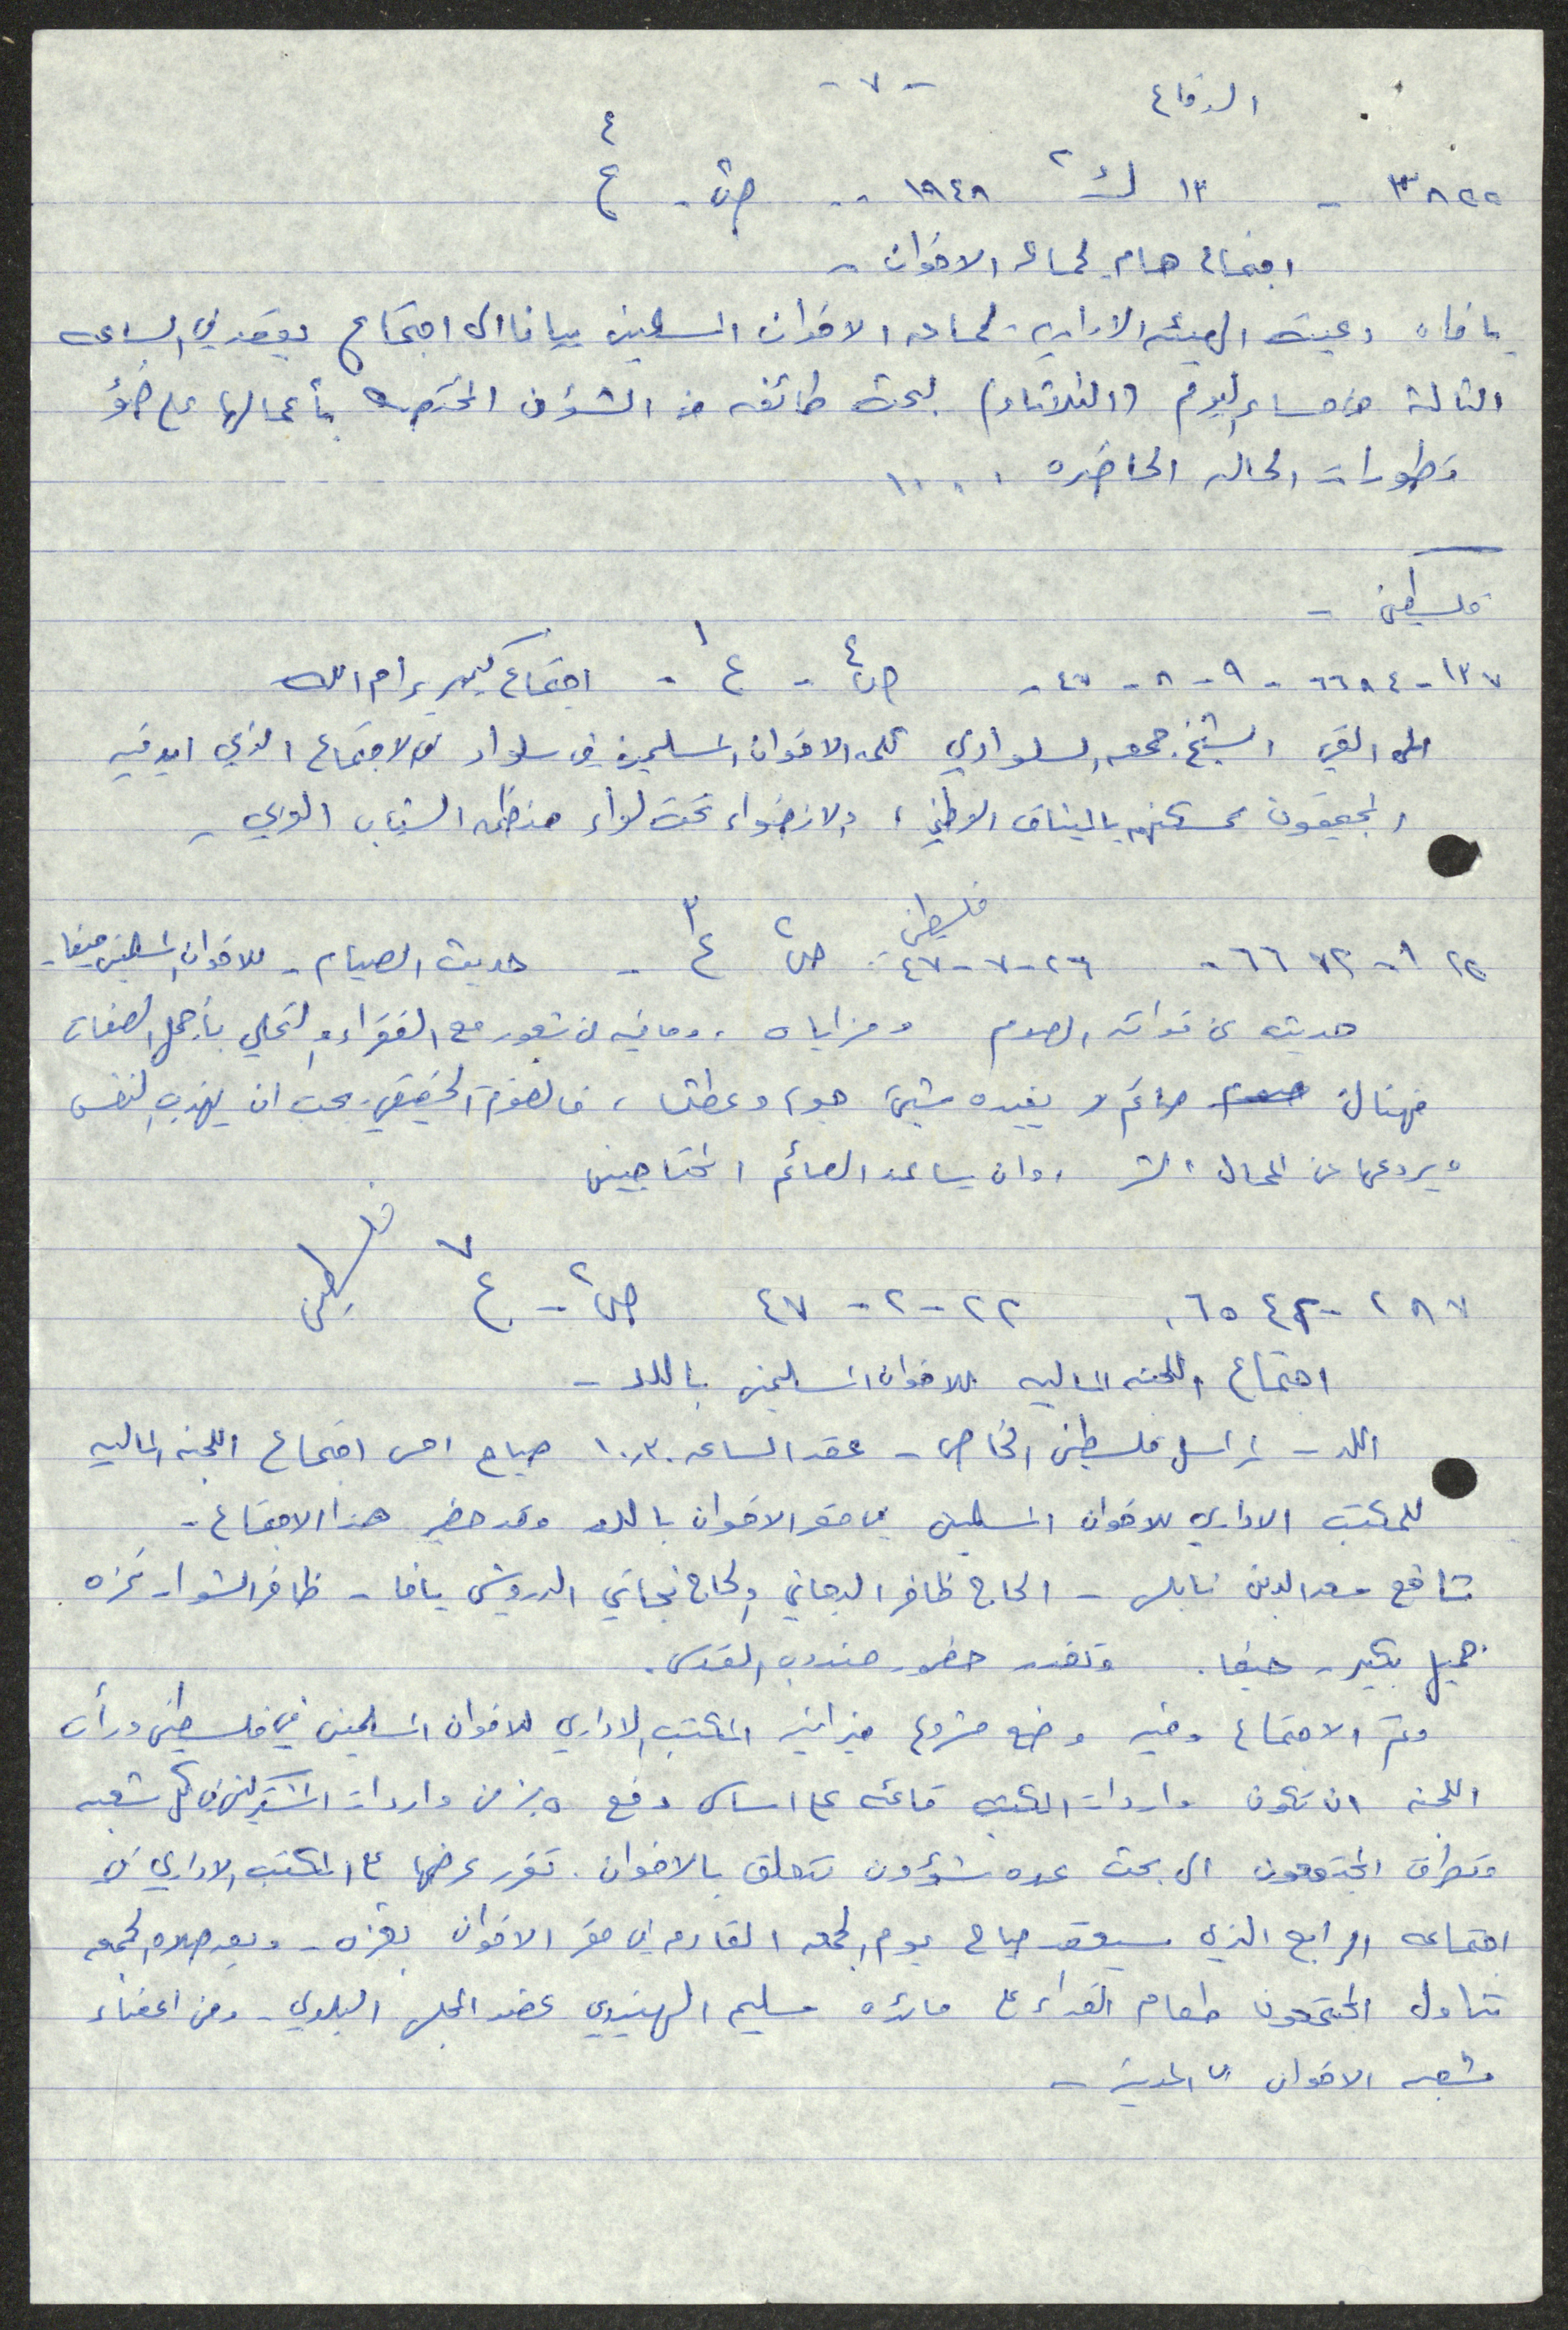 - ٧ -
الدفاع
٣٨٥٥ - ١٣ ك ٢ ١٩٤٨ - ص - ع ٤
اجتماع هام لجماعه الاخوان -
يافا، دعيت الهيئه الاداريه لجماعه الاخوان المسلمين بيافا الى اجتماع يعقد في الساعه
الثالثة من مساء اليوم (الثلاثاء) لبحث طائفه من الشؤون المختصه بأعمالها على ضوء
تطورات الحاله الحاضره ٠٠٠٠
فلسطين -
١٣٧ - ٦٦٨٤ - ٩ - ٨ - ٤٧ - ص ٤ - ع ١ - اجتماع كبير برام الله
القى الشيخ جمعه السلوادي كلمه الاخوان المسلمين في سلواد في الاجتماع الذي ايد فيه
المجتمعون تمسكهم بالميثاق الوطني، والانضواء تحت لواء منظمه الشباب العربي -
٦٦٧٢ - ٢٦ - ٧ - ٤٧ - فلسطين ص ٢ ع ٣ - حديث الصيام - للاخوان المسلمين حيفا -
حديث عن فوائد الصوم ومزاياه، وما فيه من شعور مع الفقراء والتحلي بأجمل الصفات
فهناك صائم لا يفيده شيئ جوع وعطش، فالصوم الحقيقي يجب ان يهذب النفس
ويردعها عن اعمال الشر، وان يساعد الصائم المحتاجين
٢٨٧ - ٦٥٤٢ ٢٢ - ٢ - ٤٧ ص ٢ - ع ٧ فلسطين
اجتماع اللجنه الماليه للاخوان المسلمين باللد -
اللد - لمراسل فلسطين الخاص - عقد الساعه ١٠،٣٠ صباح امس اجتماع اللجنه الماليه
للمكتب الاداري للاخوان المسلمين في مقر الاخوان باللد وقد حضر هذا الاجتماع -
شافع سعد الدين نابلس - الحاج ظافر الدجاني والحاج نجاتي الدرويش يافا - ظافر الشوا - غزه
جميل بكير - حيفا. وتعذر حضور مندوب القدس.
وتم الاجتماع وفيه وضع مشروع ميزانيه المكتب الاداري للاخوان المسلمين في فلسطين ورأت
اللجنه ان تكون واردات المكتب قائمه على اساس دفع ٥٪ من واردات المشتركين في كل شعبه
وتطرق المجتمعون الى بحث عده شؤون تتعلق بالاخوان. تقرر عرضها على المكتب الاداري في
اجتماعه الرابع الذي سيعقد صباح يوم الجمعه القادمه في مقر الاخوان بغزه - وبعد صلاه الجمعه
تناول المجتمعون طعام الغداء على مائده سليم الهنيدي عضو المجلس البلدي - ومن اعضاء
شعبه الاخوان في المدينه -